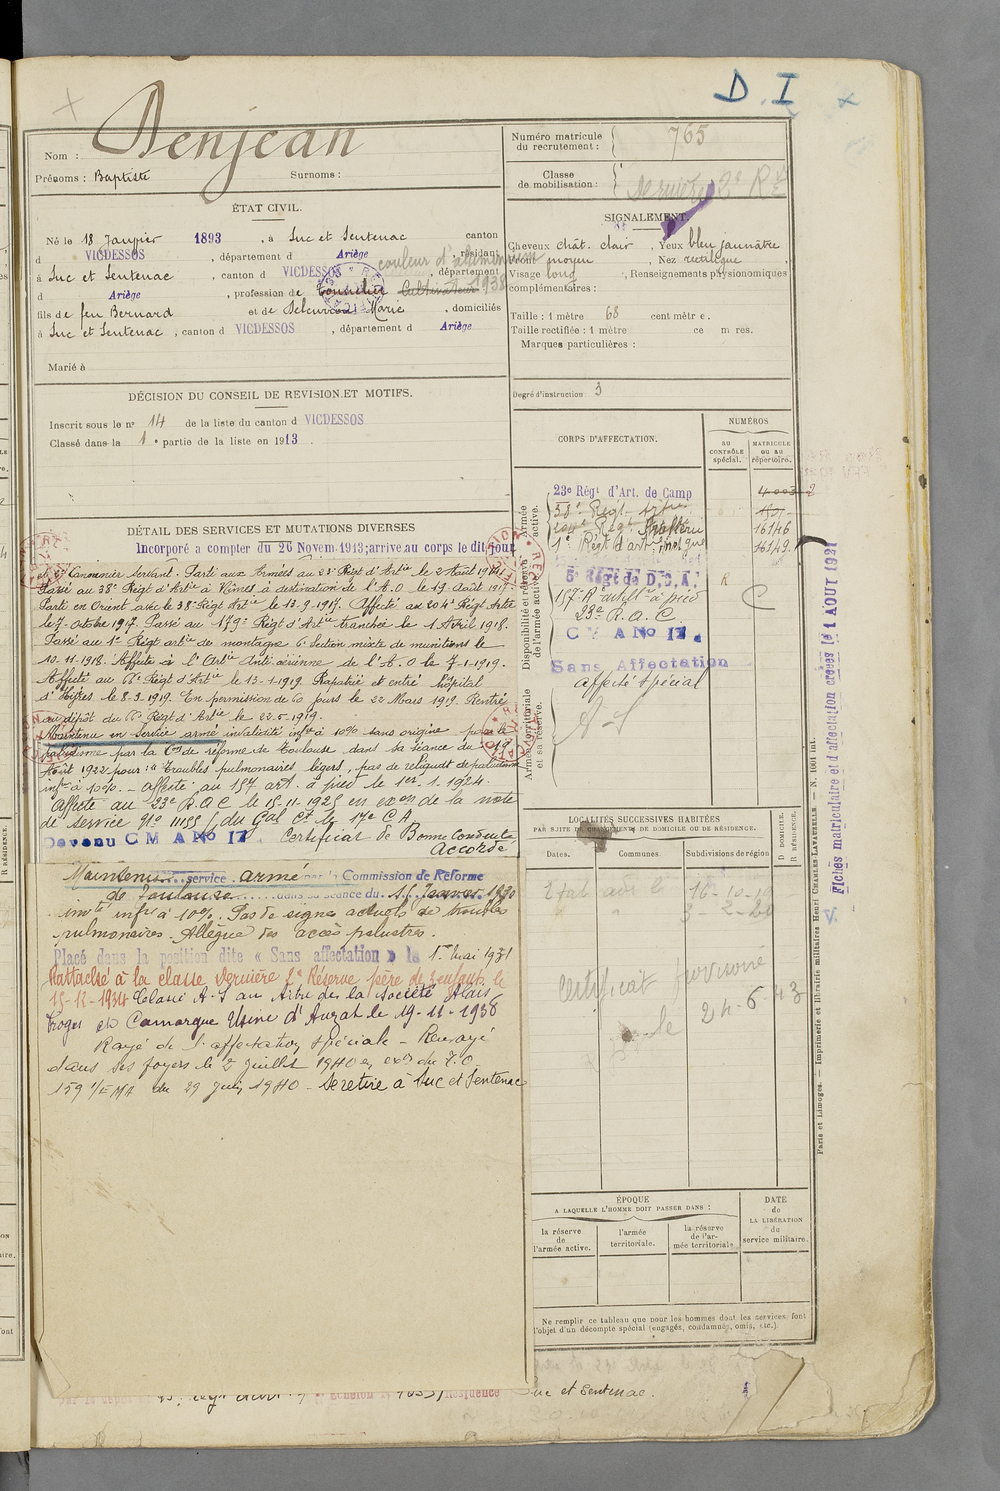 D. I
Nom : Denjean
Prénoms : Baptiste Surnoms :
ÉTAT CIVIL.
Né le 18 Janvier 1893, à Suc et Sentenac canton
d VICDESSOS, département d Ariège, résidant
à Suc et Sentenac, canton d VICDESSOS, département
d Ariège, profession de Cultivateur couleur d'aluminium 1938
fils de feu Bernard et de Marie, domiciliés
à Suc et Sentenac, canton d VICDESSOS, département d Ariège
Marié à
DÉCISION DU CONSEIL DE REVISION ET MOTIFS.
Inscrit sous le n° 14 de la liste du canton d VICDESSOS
Classé dans la 1e partie de la liste en 1913.
DÉTAIL DES SERVICES ET MUTATIONS DIVERSES
Incorporé a compter du 26 Novem. 1913; arrivé au corps le dit jour
et 2e Canonnier Servant. Parti aux Armées au 23e Régt d'Artie le 2 Août 1914.
Passé au 38e Régt d'Artie à Nîmes à destination de l'A.O le 19 Août 1917.
Parti en Orient avec le 38e Régt Artie le 13.9.1917. Affecté au 204e Régt Artie
le 7 Octobre 1917. Passé au 179e Régt d'Artie tranchée le 1 Avril 1918.
Passé au 1er Régt artie de montagne 6e Section mixte de munitions le
10.11.1918. Affecté à l'Artie Anti-aérienne de l'A.O le 7-1-1919.
Affecté au 66e Régt d'Artie le 13-1-1919. Rapatrié et entré hôpital
d'Hyères le 8.3.1919. En permission de 60 jours le 22 Mars 1919. Rentré
au dépôt du 66e Régt d'Artie le 22.5.1919.
Maintenu en Service armé invalidité infre à 10% sans origine pour le
paludisme par la Con de réforme de Toulouse dans sa séance du 19
Août 1922 pour : "troubles pulmonaires légers, pas de reliquat de paludisme
infre à 10%. - Affecté au 157 art. à pied le 1er-1-1924.
Affecté au 23e R.A.C le 15-11-1925 en exon de la note
de service n° 11155/ du Gal Ct le 17e C.A
Devenu C M A No 17 Certificat de Bonne Conduite
Accordé
Maintenu service armé par la Commission de Réforme
de Toulouse dans sa séance du Janvier 1930
invté infre à 10%. Pas de signes actuels de troubles
pulmonaires. Allègue des accès palustres.
Placé dans la position dite « Sans affectation » le 1er Mai 1931
Rattaché à la classe Dernière 2e Réserve père de enfants le
15-12-1934 Classé A.S au titre de la Société Alais
Froges et Camargue Usine d'Auzat le 19-11-1938
Rayé de l'affectation spéciale - Renvoyé
dans ses foyers le 2 Juillet 1940 en exon du T.O
159 1/EMA du 29 Juin 1940 - Se retire à Suc et Sentenac
Numéro matricule du recrutement : 765
Classe de mobilisation : Dernière 2e Rve
SIGNALEMENT.
Cheveux chât. clair, Yeux bleu jaunâtre
Front moyen, Nez rectiligne
Visage long, Renseignements physionomiques
complémentaires :
Taille : 1 mètre 68 centimètres.
Taille rectifiée : 1 mètre
Marques particulières :
Degré d'instruction 3
CORPS D'AFFECTATION.
NUMÉROS
AU CONTRÔLE spécial.
MATRICULE OU AU répertoire.
Armée active.
23e Régt d'Art. de Camp
38e Régt Artie
16146
1er Régt d'art
16149
Disponibilité et réserve de l'armée active.
6e Régt de D.C.A.
157e R. artillie à pied
C
23e R.A.C.
C M A No 17.
Sans Affectation
affecté spécial
Armée territoriale et sa réserve.
LOCALITÉS SUCCESSIVES HABITÉES
PAR SUITE DE CHANGEMENTS DE DOMICILE OU DE RÉSIDENCE.
Dates.
Communes.
Subdivisions de région
D DOMICILE.
R RÉSIDENCE.
16-10-19
3-2-20
Certificat provisoire
le 24-6-43
ÉPOQUE
A LAQUELLE L'HOMME DOIT PASSER DANS :
la réserve de l'armée active.
l'armée territoriale.
la réserve de l'armée territoriale
DATE de LA LIBÉRATION du service militaire.
Ne remplir ce tableau que pour les hommes dont les services font
l'objet d'un décompte spécial (engagés, condamnés, omis, etc.).
Résidence Suc et Sentenac.
Paris et Limoges. — Imprimerie et librairie militaires Henri CHARLES-LAVAUZELLE. — N. 1001 int.
Fiches matriculaire et d'affectation créées le 1 AOUT 1921